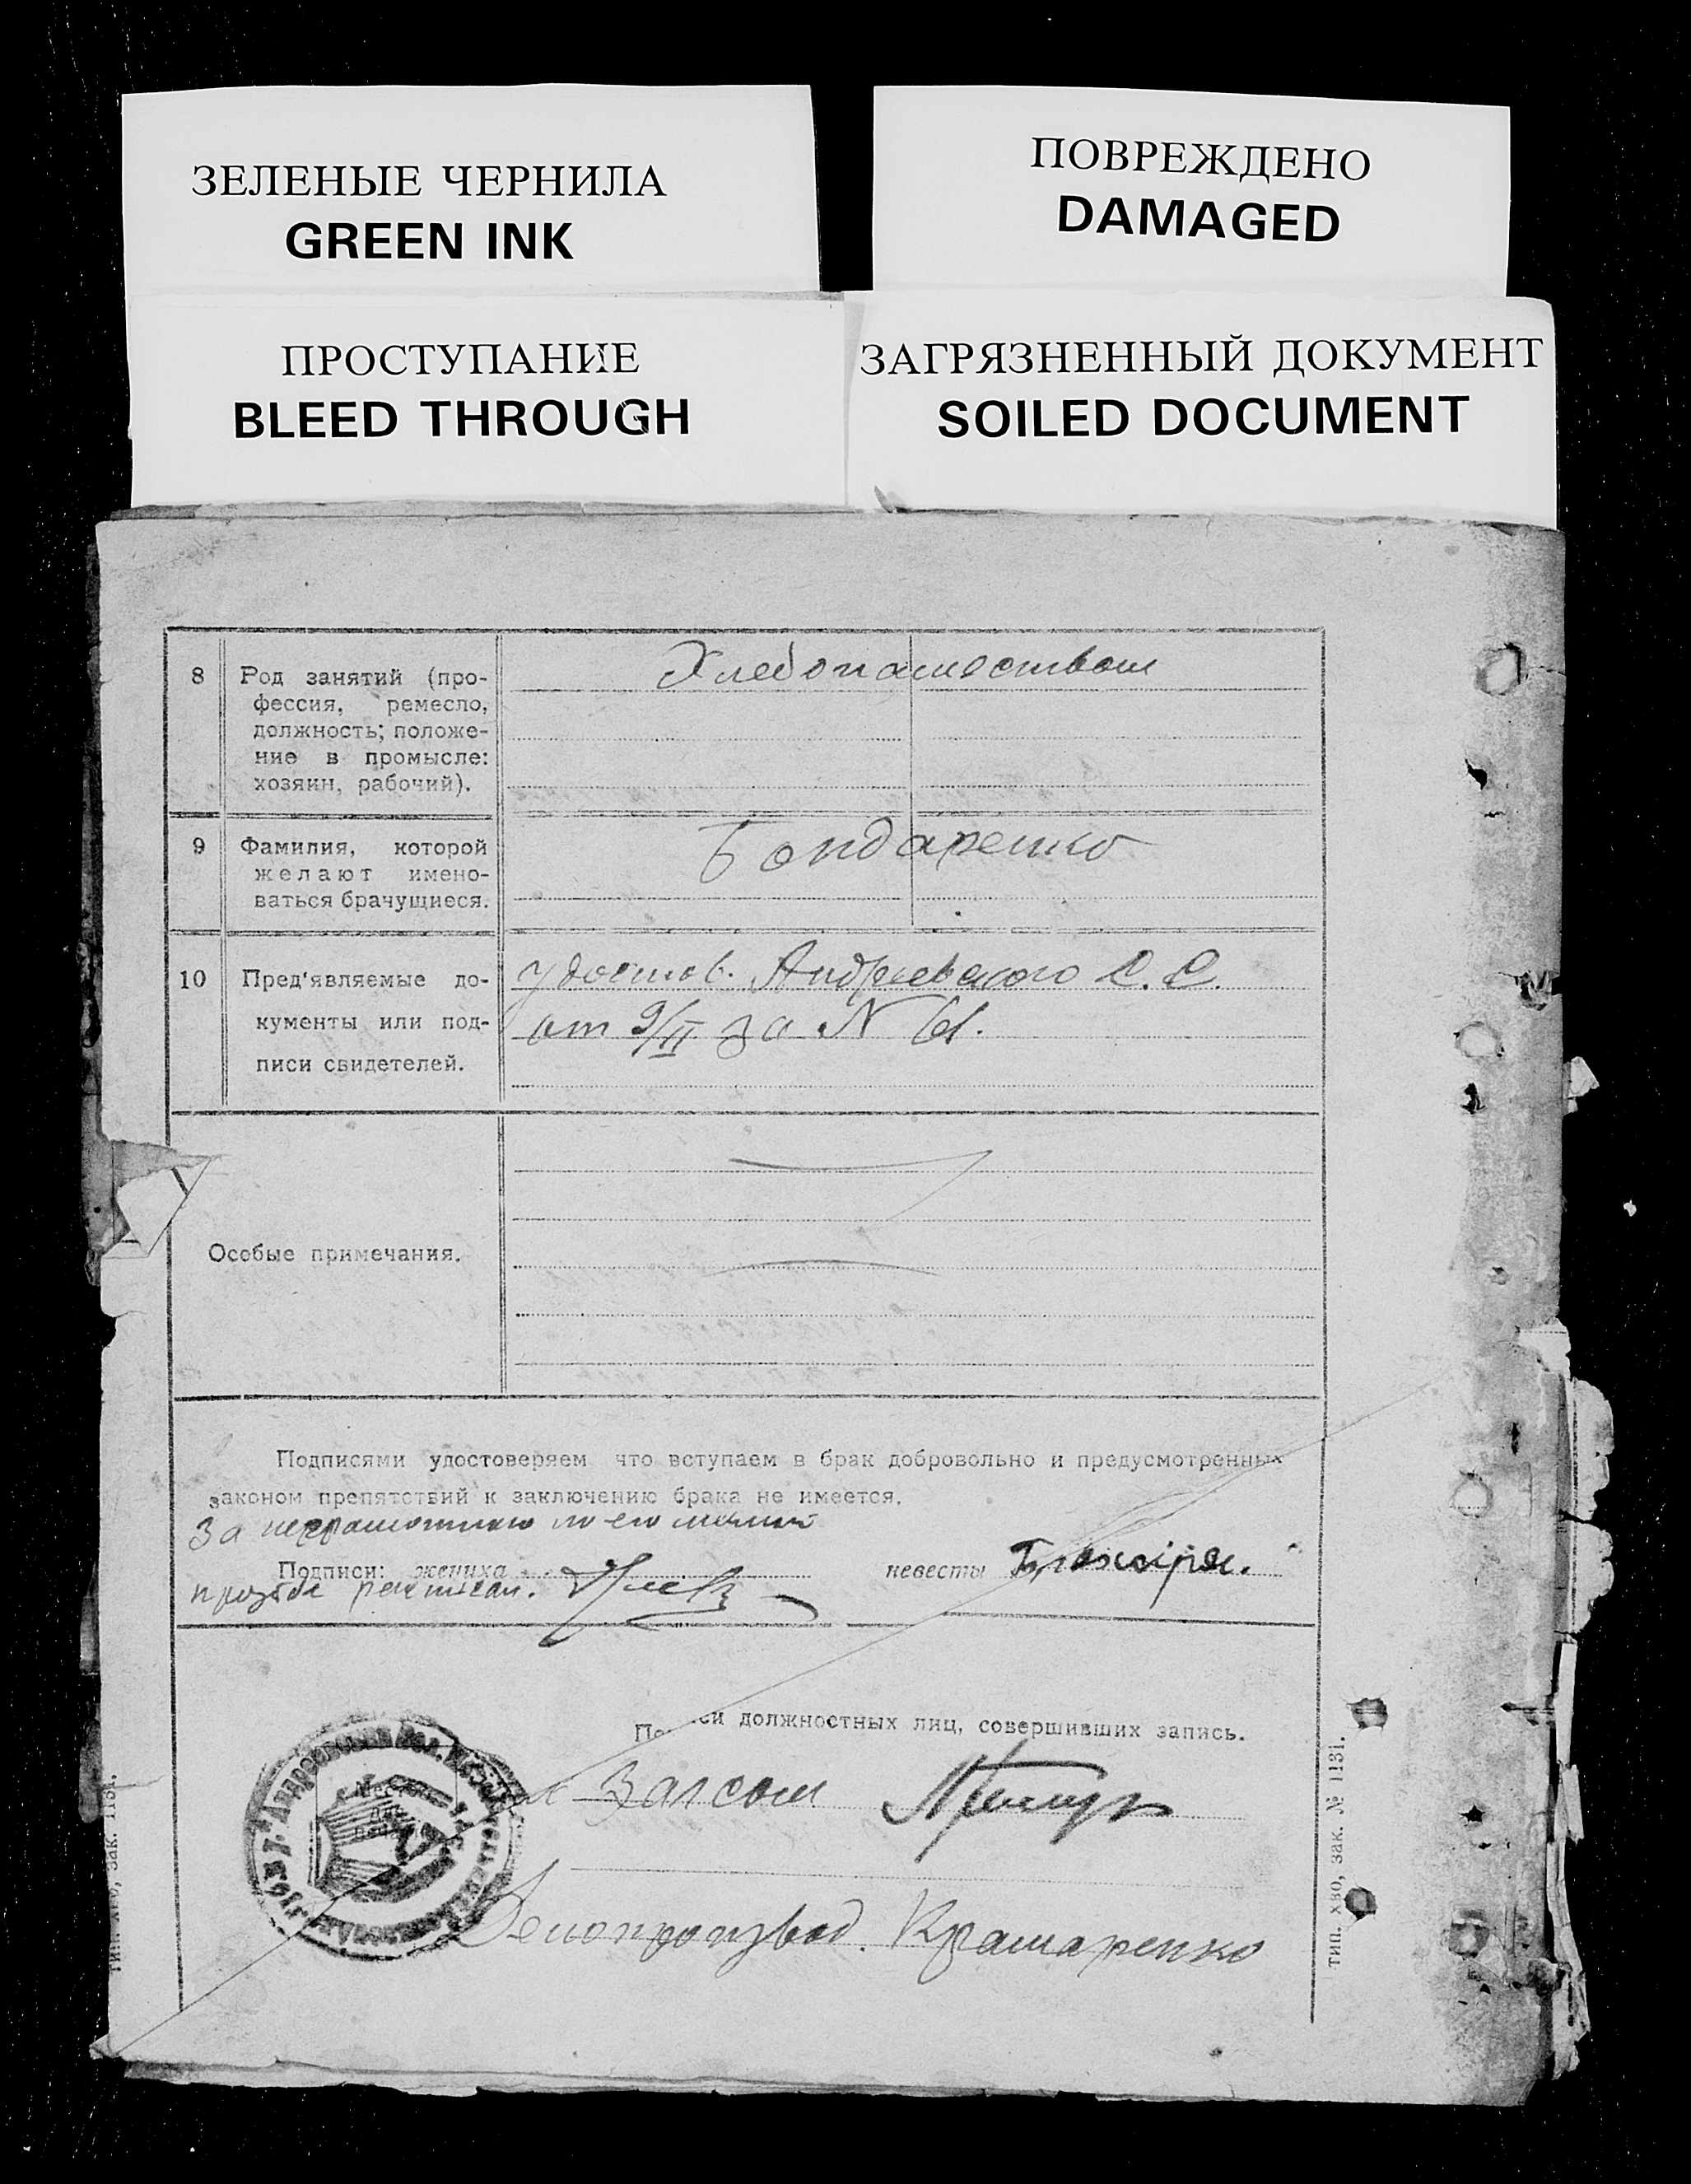 ЗЕЛЕНЫЕ ЧЕРНИЛА
GREEN INK
ПОВРЕЖДЕНО
DAMAGED
ПРОСТУПАНИЕ
BLEED THROUGH
ЗАГРЯЗНЕННЫЙ ДОКУМЕНТ
SOILED DOCUMENT
8 Род занятий (про-
фессия, ремесло,
должность; положе-
ние в промысле:
хозяин, рабочий).
Хлебопашеством
9 Фамилия, которой
желают имено-
ваться брачущиеся.
Бондаренко
10 Пред'являемые до-
кументы или под-
писи свидетелей.
удостов. Андреевского С.С.
от 9/II за N 61.
Особые примечания.
Подписями удостоверяем что вступаем в брак добровольно и предусмотренных
законом препятствий к заключению брака не имеется.
За неграмотного по его личной
Подписи: жениха
невесты
прозьбе расписал.
должностных лиц, совершивших запись.
Загсом
Делопроизвод. Крамаренко
тип. хво, зак. № 1131.